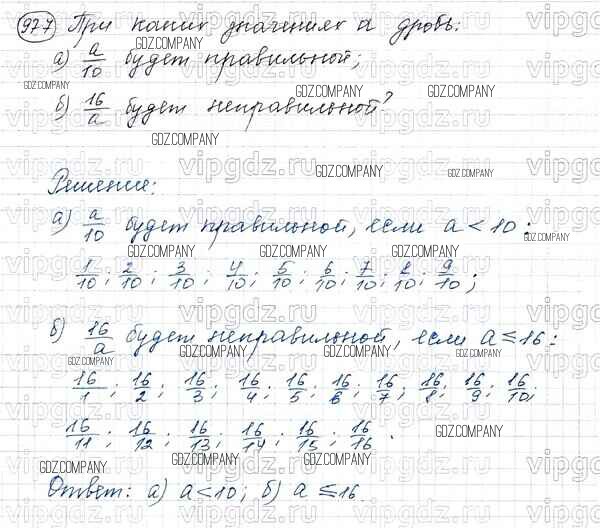 977 При каких значениях а дробь:
а) а/10 будет правильной;
б) 16/а будет неправильной?
Решение:
а) а/10 будет правильной, если а < 10:
1/10; 2/10; 3/10; 4/10; 5/10; 6/10; 7/10; 8/10; 9/10;
б) 16/а будет неправильной, если а ≤ 16:
16/1; 16/2; 16/3; 16/4; 16/5; 16/6; 16/7; 16/8; 16/9; 16/10;
16/11; 16/12; 16/13; 16/14; 16/15; 16/16.
Ответ: а) а < 10; б) а ≤ 16.
GDZ.COMPANY
vipgdz.ru